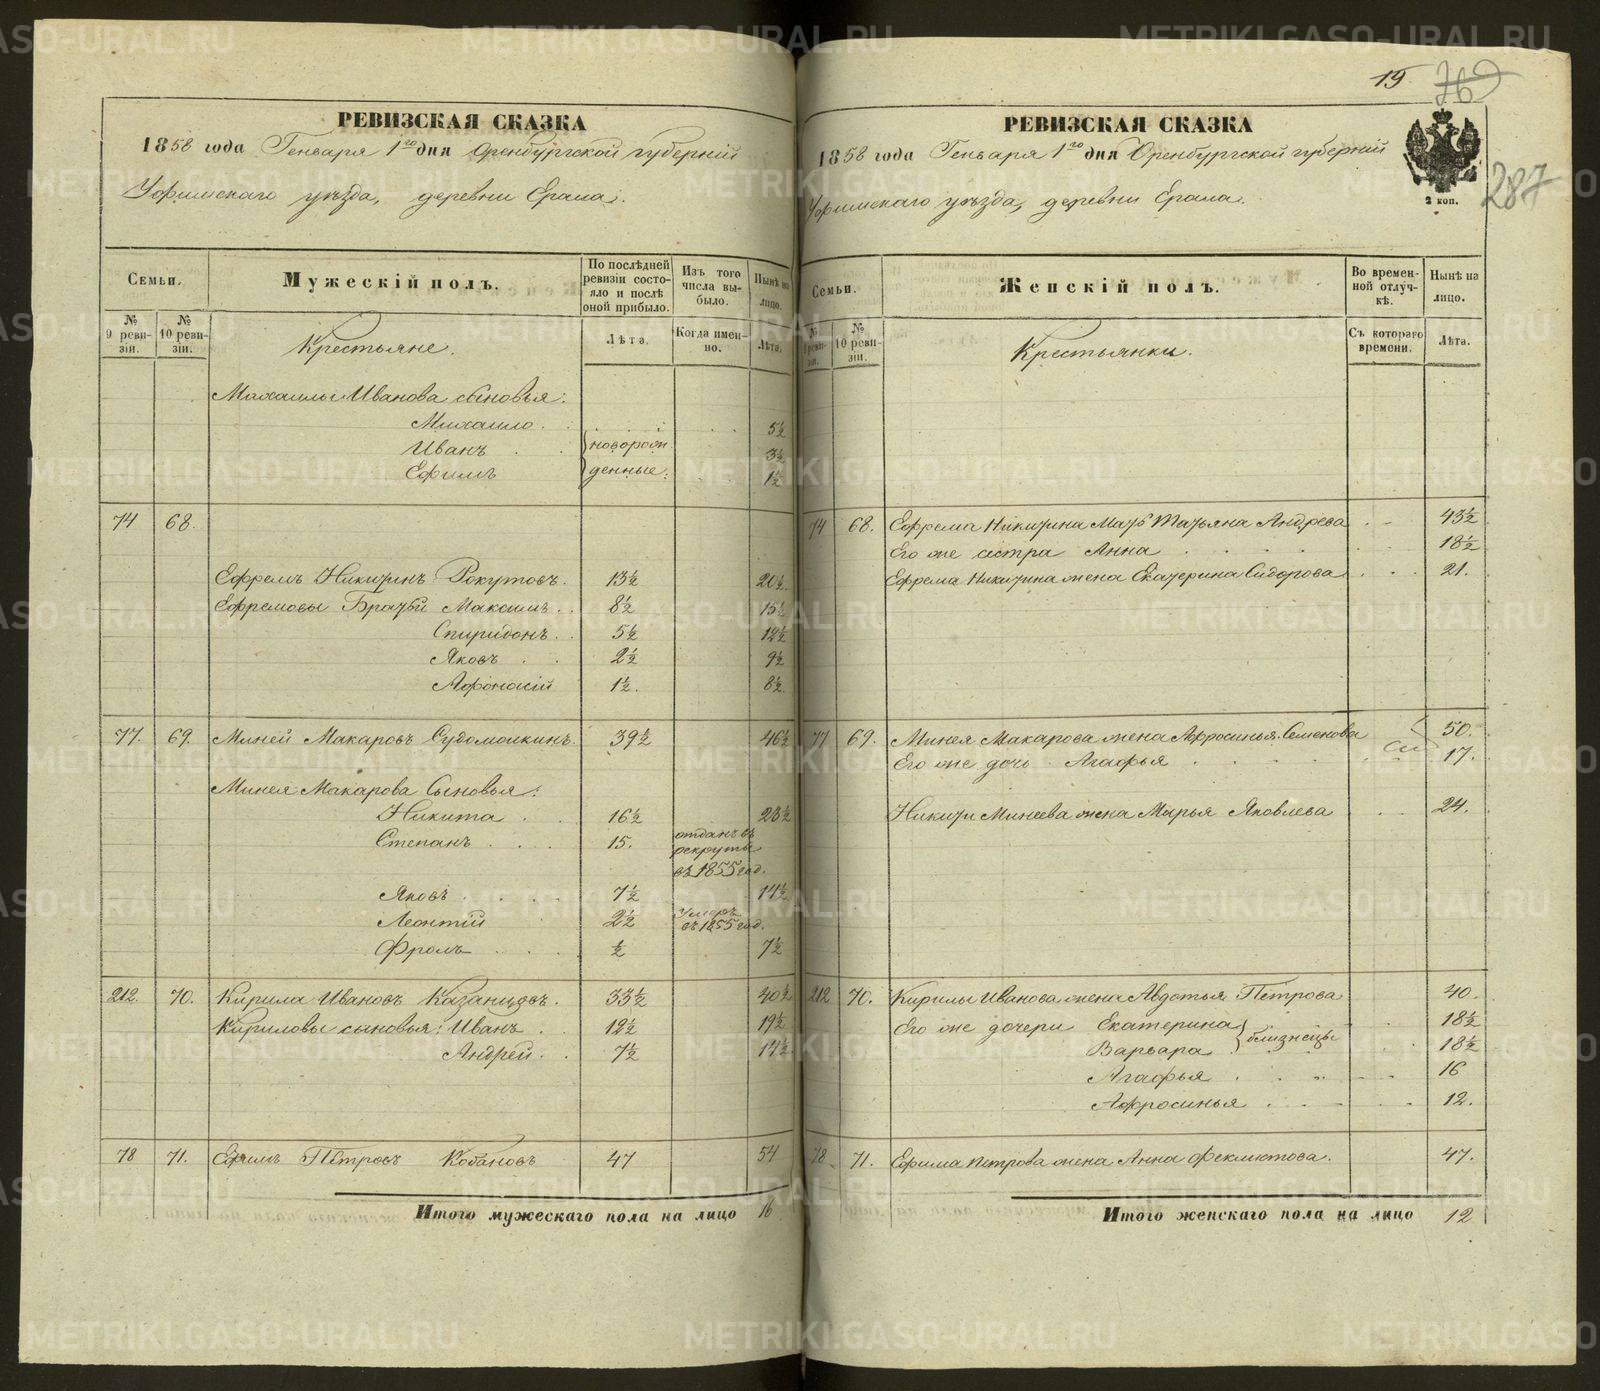 19 769
287
РЕВИЗСКАЯ СКАЗКА
1858 года Генваря 1го дня Оренбургской губернiи
Уфимскаго уѣзда, деревни Ерала.
Семьи.
№ 9 ревизiи.
№ 10 ревизiи.
Мужескiй полъ.
По послѣдней ревизiи состояло и послѣ оной прибыло.
Лѣта.
Изъ того числа выбыло.
Когда именно.
Нынѣ на лицо.
Лѣта.
Крестьяне.
Михаилы Иванова сыновья:
Михаило . . . . . . 5½
Иванъ . . новорож 3½
Ефимъ денные: . . 1½
74 68.
Ефремъ Никитинъ Рокутовъ. 13½ 20½
Ефремовы Братьи Максимъ . . 8½ 15½
Спиридонъ . . 5½ 12½
Яковъ . . 2½ 9½
Афонасiй 1½. 8½.
77. 69. Миней Макаровъ Судомойкинъ. 39½ 46½
Минея Макарова Сыновья:
Никита . . 16½ 23½
Степанъ . . . . 15. отданъ въ рекруты въ 1855 год.
Яковъ . . . . . 7½ 14½
Леонтiй 2½ умеръ въ 1855 год.
Фролъ . . . . ½ 7½
212. 70. Кирила Ивановъ Казанцовъ. 33½ 40½
Кириловы сыновья: Иванъ . . 12½ 19½
Андрей . . 7½ 14½
78 71. Ефимъ Петровъ Кобановъ 47 54
Итого мужескаго пола на лицо 16
РЕВИЗСКАЯ СКАЗКА
1858 года Генваря 1го дня Оренбургской губернiи
Уфимскаго уѣзда, деревни Ерала.
2 коп.
Семьи.
№ 9 ревизiи.
№ 10 ревизiи.
Женскiй полъ.
Во временной отлучкѣ.
Съ котораго времени.
Нынѣ на лицо.
Лѣта.
Крестьянки.
74 68. Ефрема Никитина Мать Татьяна Андрева . . 43½
Его же сестра Анна . . . . . 18½
Ефрема Никитина жена Екатерина Сидорова . . . 21.
77 69. Минея Макарова жена Афросинья Семенова 50.
Его же дочь Агафья . . . . . . 17.
Никиты Минеева жена Марья Яковлева . . . 24.
212 70. Кирилы Иванова жена Авдотья Петрова 40.
Его же дочери Екатерина близнецы 18½
Варвара . . . 18½
Агафья . . . . . 16
Афросинья . . . . . . 12.
78. 71. Ефима Петрова жена Анна Феклистова. 47.
Итого женскаго пола на лицо 12
METRIKI.GASO-URAL.RU